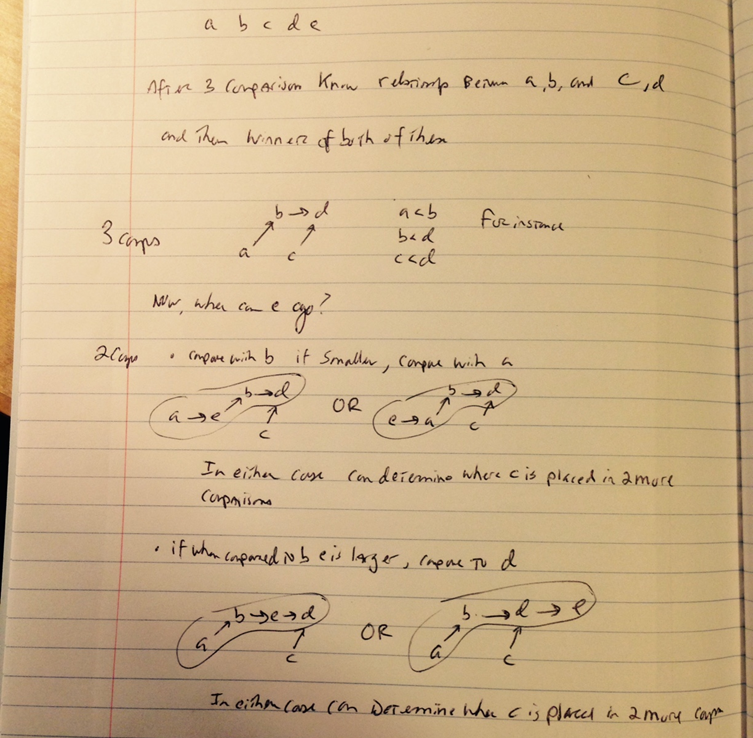 a b c d e
After 3 comparison know relationship Between a, b, and c, d
and then winners of both of them
b → d a < b For instance
3 comps b < d
a c c < d
Now, where can e go?
2 comps • compare with b if smaller, compare with a
b → d OR b → d
a → e e → a
c c
In either case can determine where c is placed in 2 more
comparisons
• if when compared to b e is larger, compare to d
b → e → d OR b → d → e
a c a c
In either case can Determine where c is placed in 2 more comps